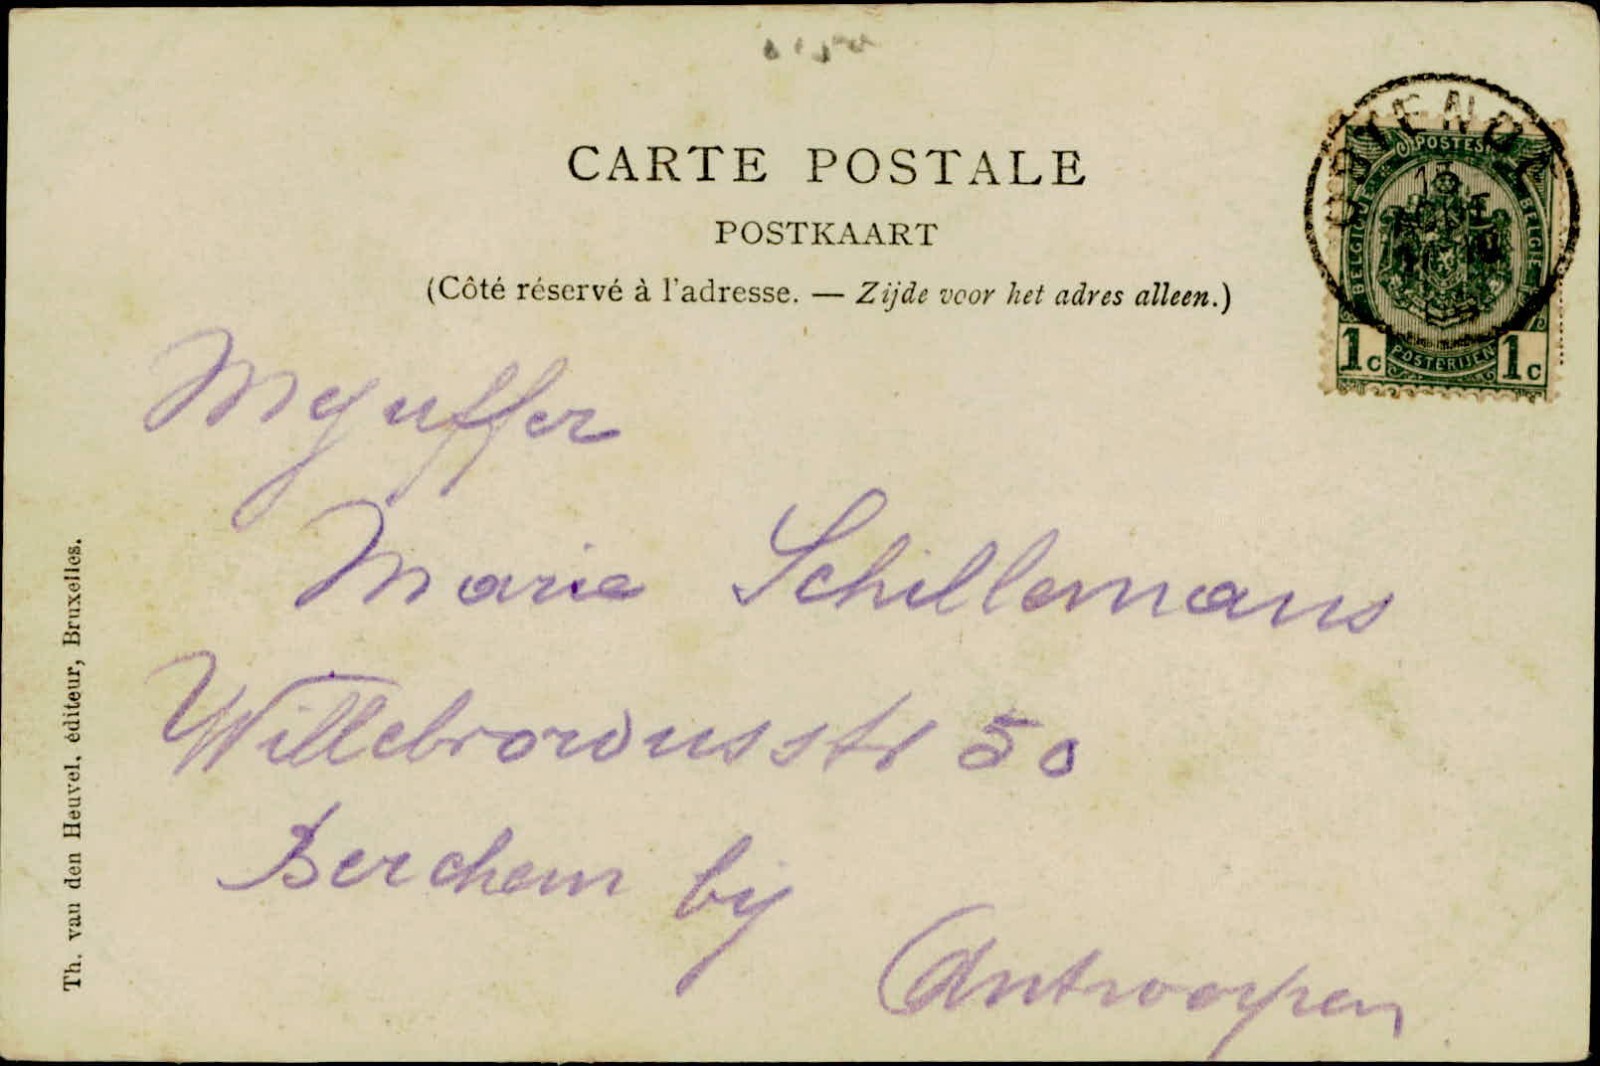 CARTE POSTALE
POSTKAART
(Côté réservé à l'adresse. — Zijde voor het adres alleen.)
OSTENDE
POSTES
BELGIQUE
BELGIË
1c POSTERIJEN 1c
Mejuffer
Marie Schillemans
Willebrordusstr 50
Berchem by
Antwerpen
Th. van den Heuvel, éditeur, Bruxelles.